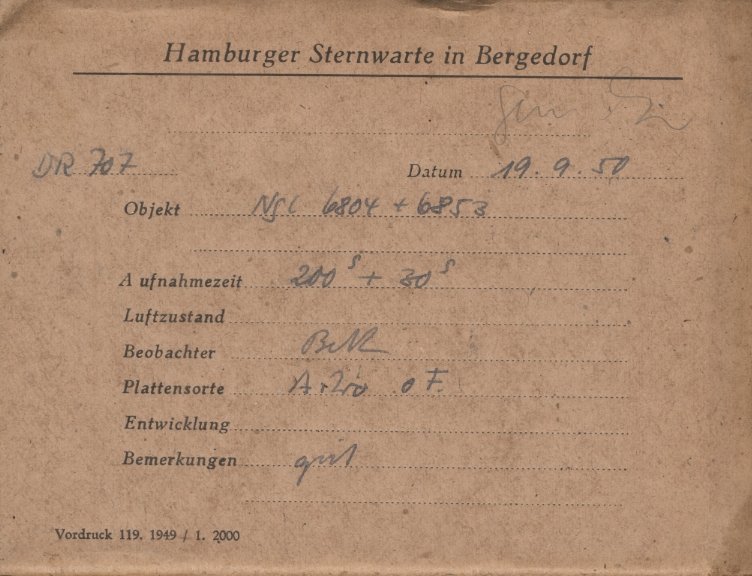 Hamburger Sternwarte in Bergedorf
DR 707 Datum 19. 9. 50
Objekt NGC 6804 + 6853
Aufnahmezeit 200 s + 30 s
Luftzustand
Beobachter
Plattensorte
Entwicklung
Bemerkungen gut
Vordruck 119. 1949 / 1. 2000